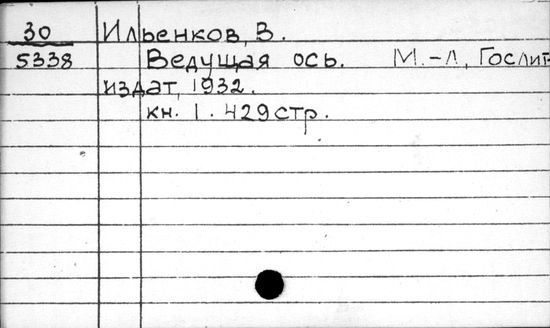 30 Ильенков, В.
5338 Ведущая ось. М.-Л, Гослит
издат, 1932.
кн. 1. 429стр.